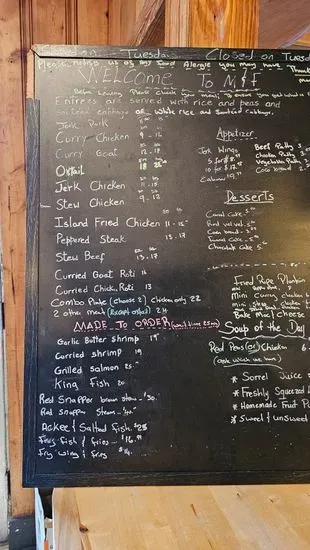 Tuesday Closed on Tuesd
Please notify us of any food Alergie you may have Thank
WELCOME To N&F
Before leaving Please check your meal, to ensure you got what
Entrees are served with rice and peas and
sauteed cabbage or white rice and Sauteed Cabbage.
Jerk Pork
Curry Chicken 9 - 12
Curry Goat 12 - 18
Oxtail 18 25
Jerk Chicken 11 - 15
Stew Chicken 9 - 12
Island Fried Chicken 11 - 15
Peppered Steak 13 - 17
Stew Beef 13 - 17
Curried Goat Roti 16
Curried Chick. Roti 13
Combo Plate (choose 2) Chicken only 22
2 other meat (Except oxtail) 24
MADE To ORDER (wait time 25 min)
Garlic Butter shrimp 19
Curried shrimp 19
Grilled salmon 25
King Fish 20
Red Snapper brown stew - 30
Red snapper Steam
Ackee & Salted fish $25
Fry fish & fries $16.99
Fry wing & fry $14
Appetizer
Jerk Wings
5 for $8
10 for $17
Beef Patty 3
Chicken Patty
Vegetable Patty
Coco bread 2
Desserts
Carrot Cake 5
Red velvet
Corn bread
Chocolate Cake 5
Fried Ripe Plantain
Mini Curry chicken
Bake Mac/Cheese
Soup of the Day
Red Peas (or) Chicken 6
(ask which we have)
* Sorrel Juice
* Freshly Squeezed
* Homemade Fruit Pu
* Sweet & unsweet